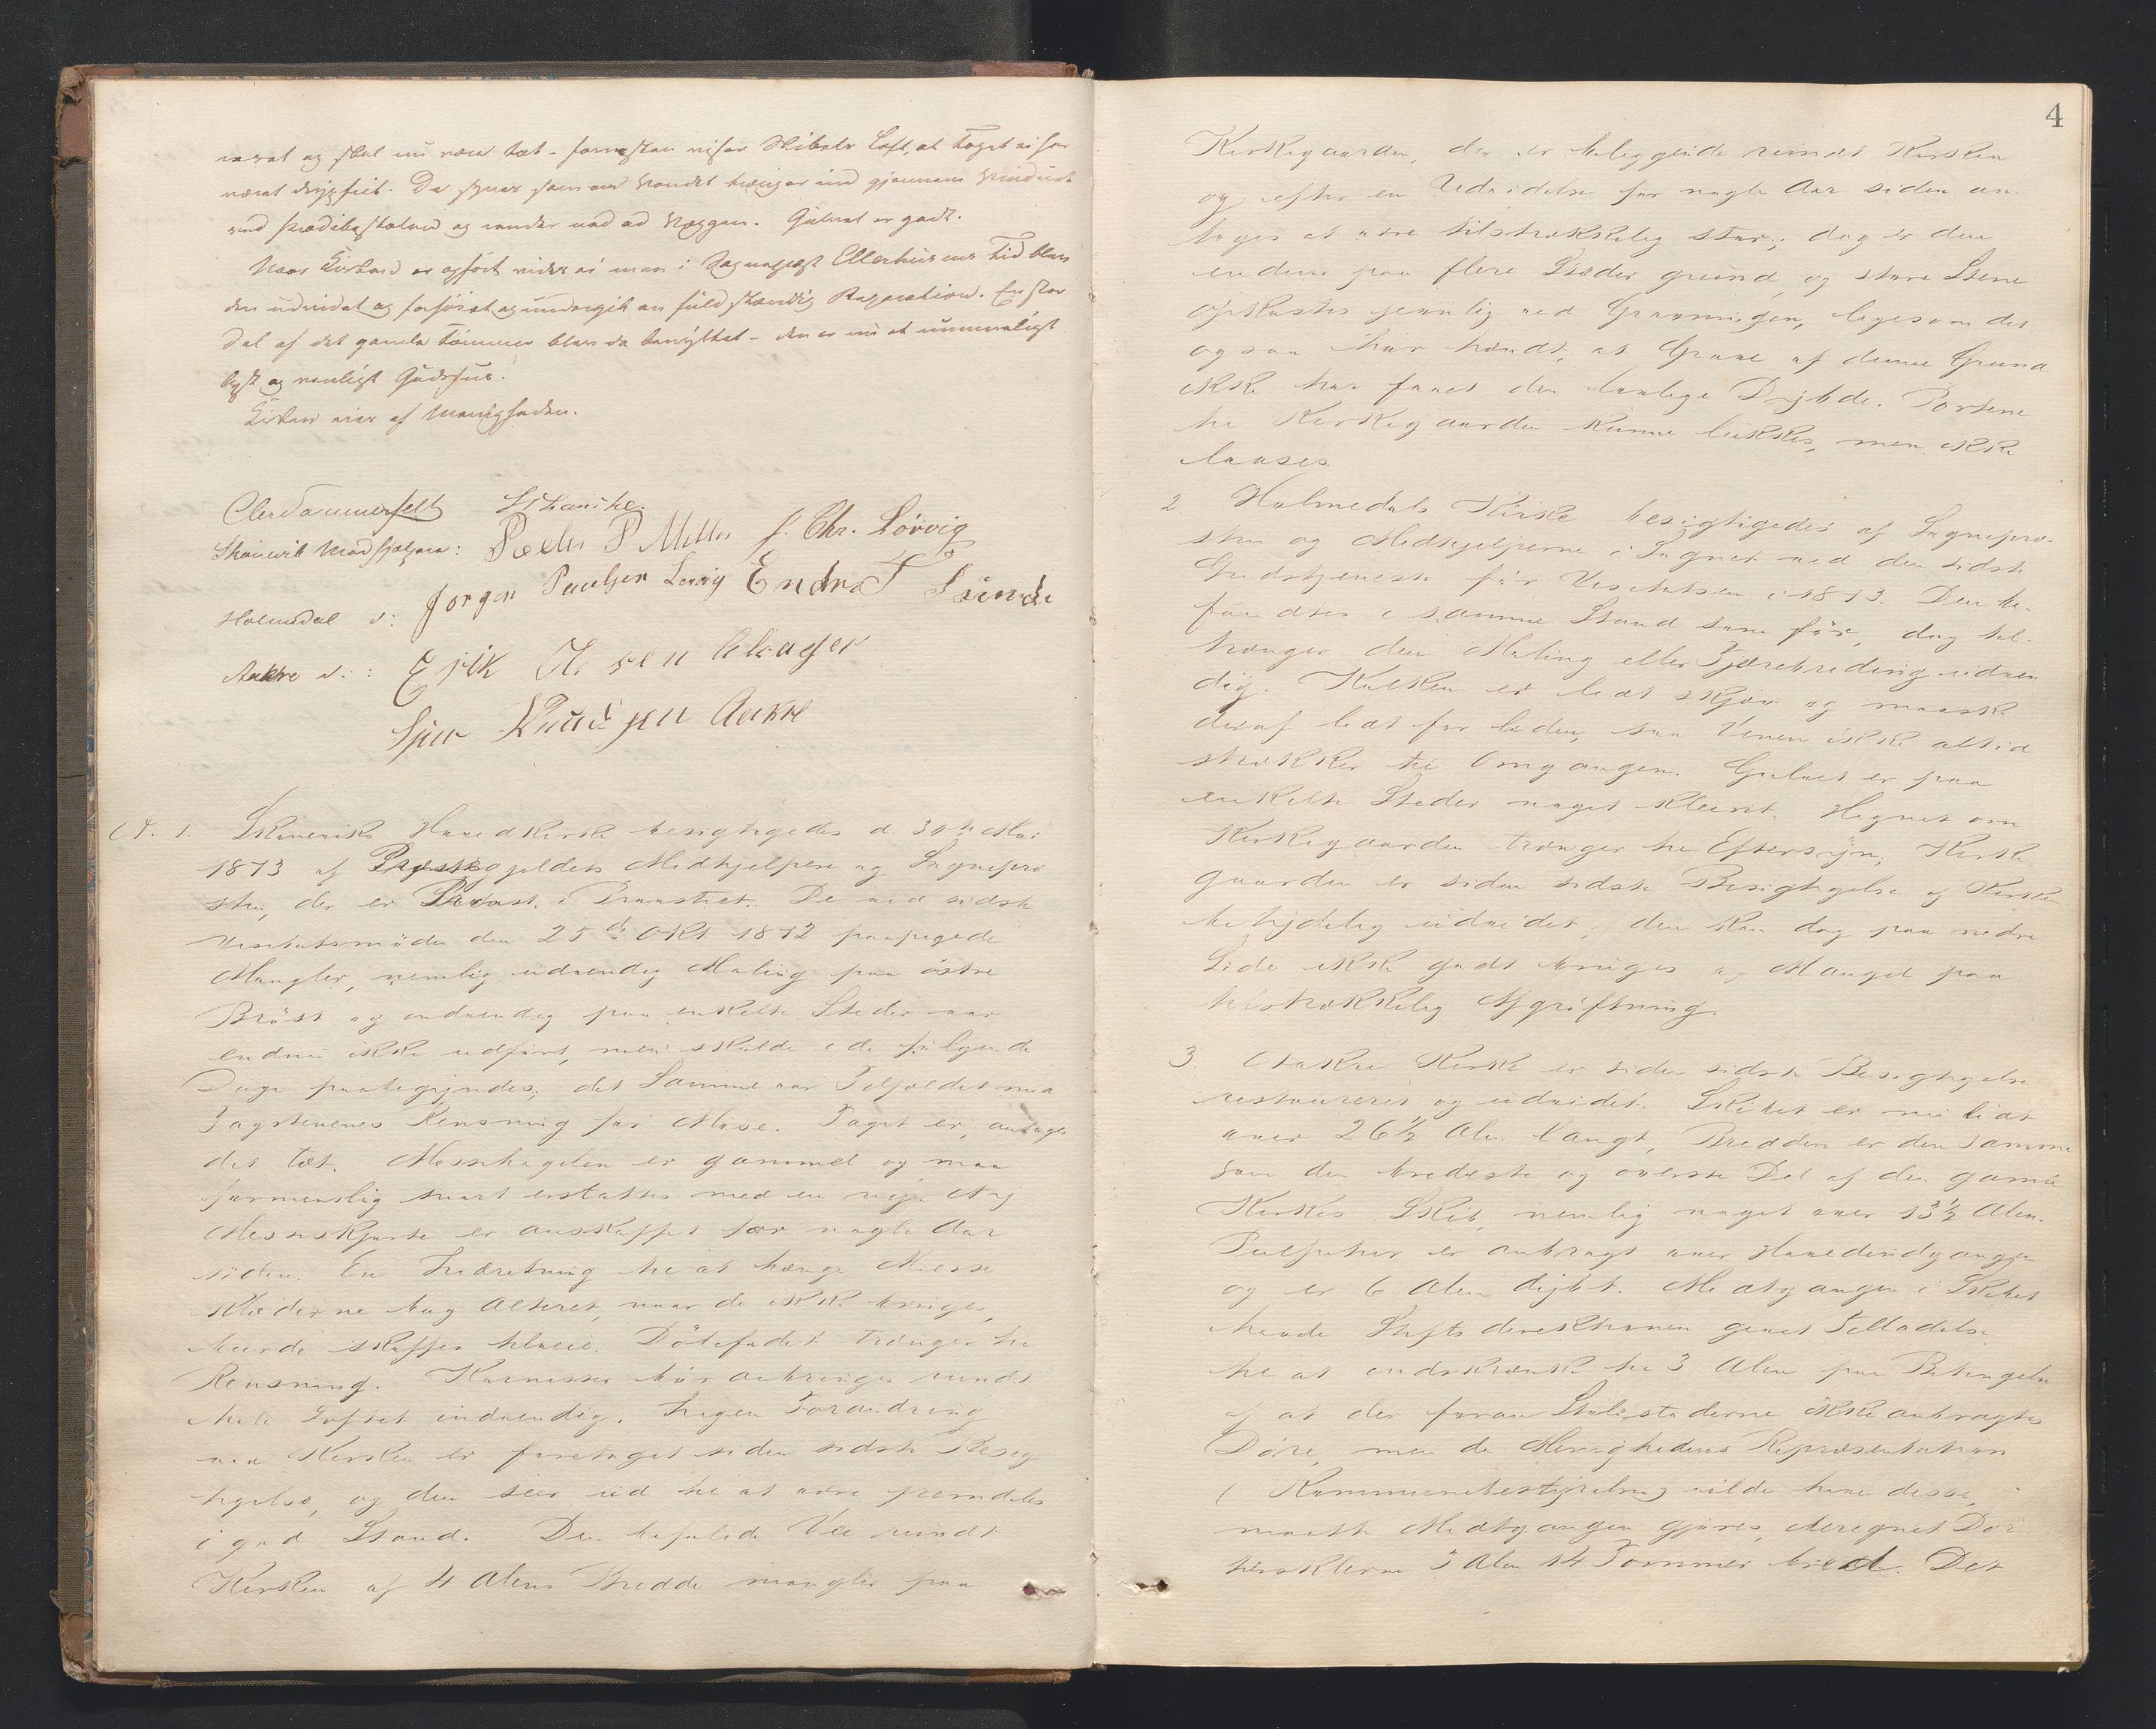 været og skal nu være tæt – forresten viser Skibets Loft, at Taget ei har
været drypfrit. Det synes som om Vandet trænger ind gjennem Vinduet
ved Prædikestolen og render ned ad Væggen. Gulvet er godt.
Naar Kirken er opført vides ei men i Sogneprest Ellerhusens Tid blev
den udvidet og forhøiet og undergik en fuldstændig Reparation. En stor
Del af det gamle Tømmer blev da benyttet – den er nu et rummeligt
lyst og venligt Gudshus.
Kirken eies af Menigheden.
Skånevik Medhjælpere: Peder P Milles J. Chr. Lørvig
Holmedal d: Jørgen Paulsen Endre T Sunde
Aakre d: : Erik
Knudsen Aakre
1. Skaanevik Hovedkirke besigtigedes d. 30te Mai
1873 af Præstegjeldets Medhjelpere og Sognepre
sten, der er Provst i Provstiet. De ved sidste
Visitatsmøde den 25de Okt. 1872 paapegede
Mangler, nemlig udvendig Maling paa østre
Bröst og indvendig paa enkelte Steder var
endnu ikke udført, men skulde i de følgende
Dage paabegyndes; det Samme var Tilfældet med
Tagstenenes Rensning for Mose. Taget er, antages
det tæt. Messehagelen er gammel og maa
formentlig snart erstattes med en ny. Ny
Messeskjorte er anskaffet for nogle Aar
siden. En Indretning til at hænge Messe
klæderne bag Alteret, naar de ikke bruges,
burde skaffes tilveie. Döbefadet trænger til
Rensning. Karnisser bør anbringes rundt
hele Loftet indvendig. Ingen Forandring
ved Kirken er foretaget siden sidste Besig
tigelse, og den seer ud til at være fremdeles
i god Stand. Den befalede Vei rundt
Kirken af 4 Alens Bredde mangler paa
4
Kirkegaarden, der er beliggende rundt Kirken
og efter en Udvidelse for nogle Aar siden an-
tages at være tilstrækkelig stor; dog er den
endnu paa flere Steder grund, og store Stene
opkastes jevnlig ved Gravningen, ligesom det
ogsaa har hændt, at Grave af denne Grund
ikke har faaet den lovlige Dybde. Portene
til Kirkegaarden kunne lukkes, men ikke
laases.
2. Holmedals Kirke besigtigedes af Sognepre-
sten og Medhjelperne i Sognet ved den sidste
Gudstjeneste før Visitatsen i 1873. Den be-
fandtes i samme Stand som før, dog til-
trænger den Maling eller Tjærebreding udven
dig. Kalken er lidt skjæv og maaske
deraf lidt for liden, saa Vinen ikke altid
strækker til Omgangen. Gulvet er paa
enkelte Steder noget kleint. Hegnet om
Kirkegaarden trænger til Eftersyn; Kirke
gaarden er siden sidste Besigtigelse af Kirken
betydelig udvidet; den kan dog paa nedre
Side ikke godt bruges af Mangel paa
tilstrækkelig Afgrøftning.
3. Aakre Kirke er siden sidste Besigtigelse
restaureret og udvidet. Skibet er nu lidt
over 26½ Alen langt, Bredden er den samme
som den bredeste og øverste Del af den gamle
Kirkes Skib, nemlig noget over 13½ Alen.
Pulpitur er anbragt over Hovedindgangen
og er 6 Alen dybt. Midtgangen i Skibet
havde Stiftsdirektionen givet Tilladelse
til at indskrænke til 3 Alen paa Betingelse
af at der foran Stolestaderne ikke anbragtes
Döre, men da Menighedens Repræsentation
(Kommunebestyrelsen) vilde have disse,
maatte Midtgangen gjøres, iberegnet Dör
tersklerne 3 Alen 14 Tommer bred. Det